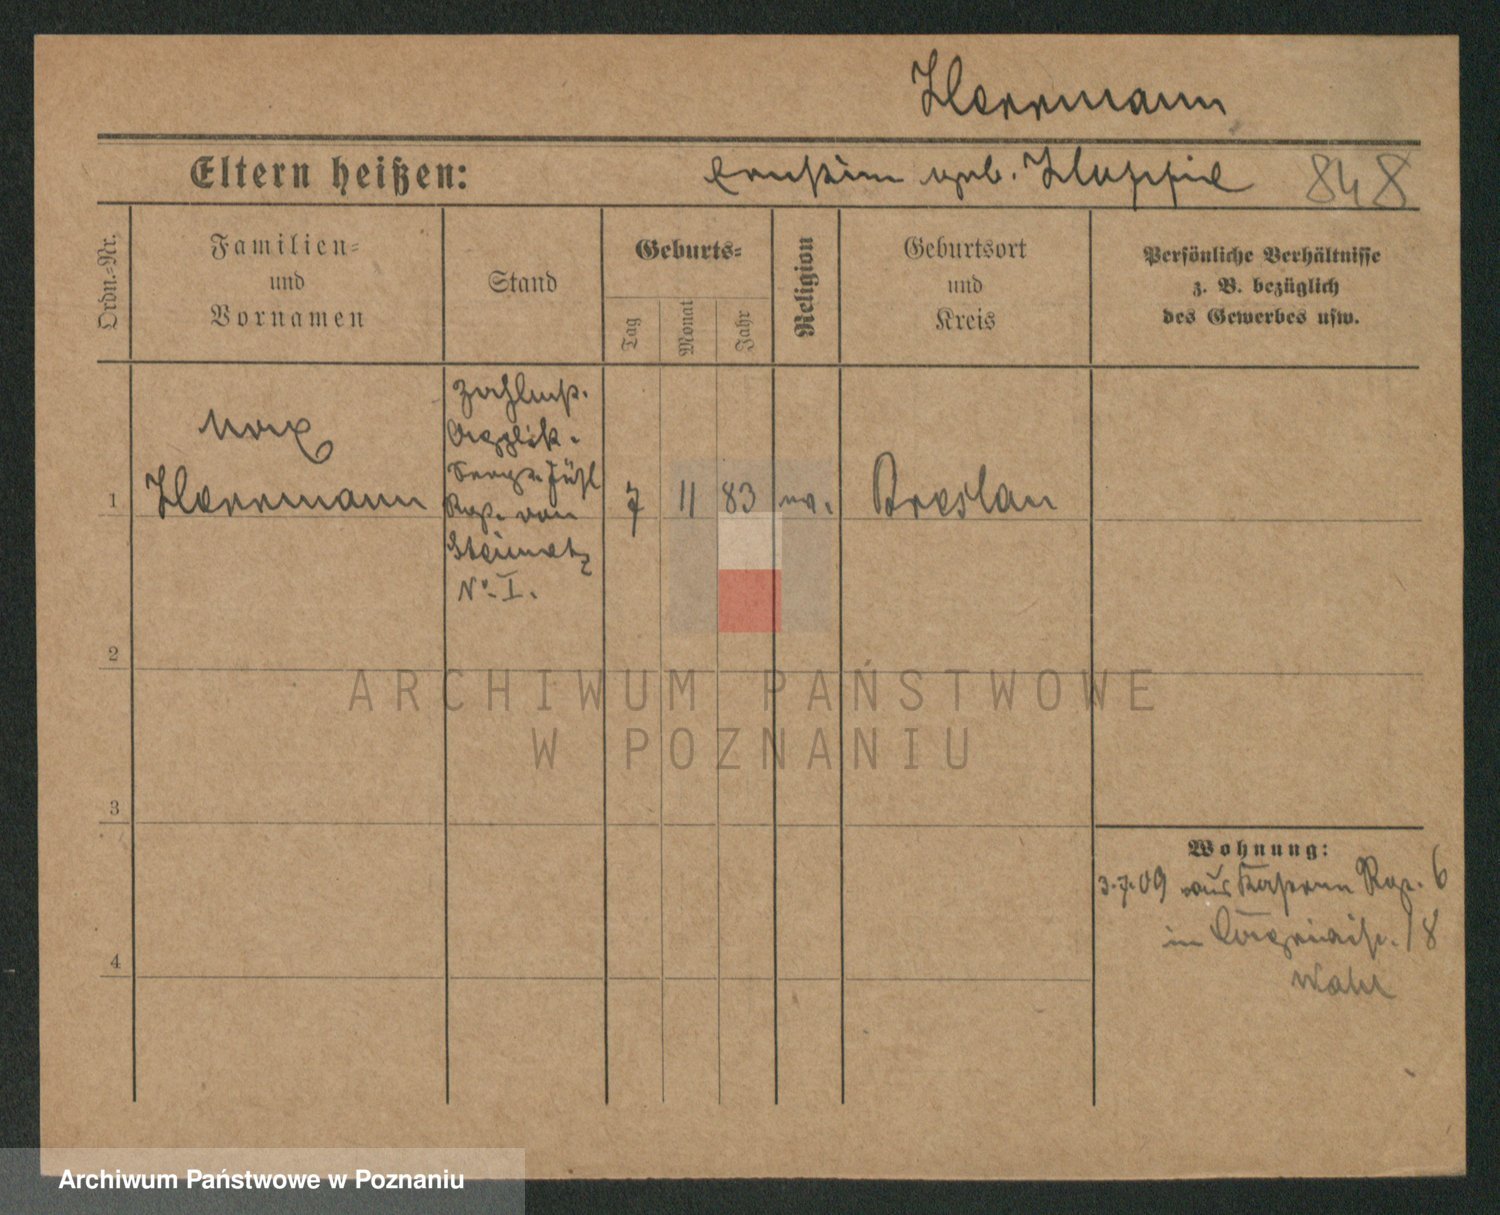 Herrmann
Eltern heißen:
geb.
848
Ordn.=Nr.
Familien=
und
Vornamen
Stand
Geburts=
Tag
Monat
Jahr
Religion
Geburtsort
und
Kreis
Persönliche Verhältnisse
z. B. bezüglich
des Gewerbes usw.
1
Max
Herrmann
Zahlmst.
Serg. Füsl
Rgt. von
Steinmetz
No. I.
7
11
83
ev.
Breslau
2
3
4
Wohnung:
3.7.09 aus Kaserne Rgt. 6
in 18
ARCHIWUM PAŃSTWOWE
W POZNANIU
Archiwum Państwowe w Poznaniu